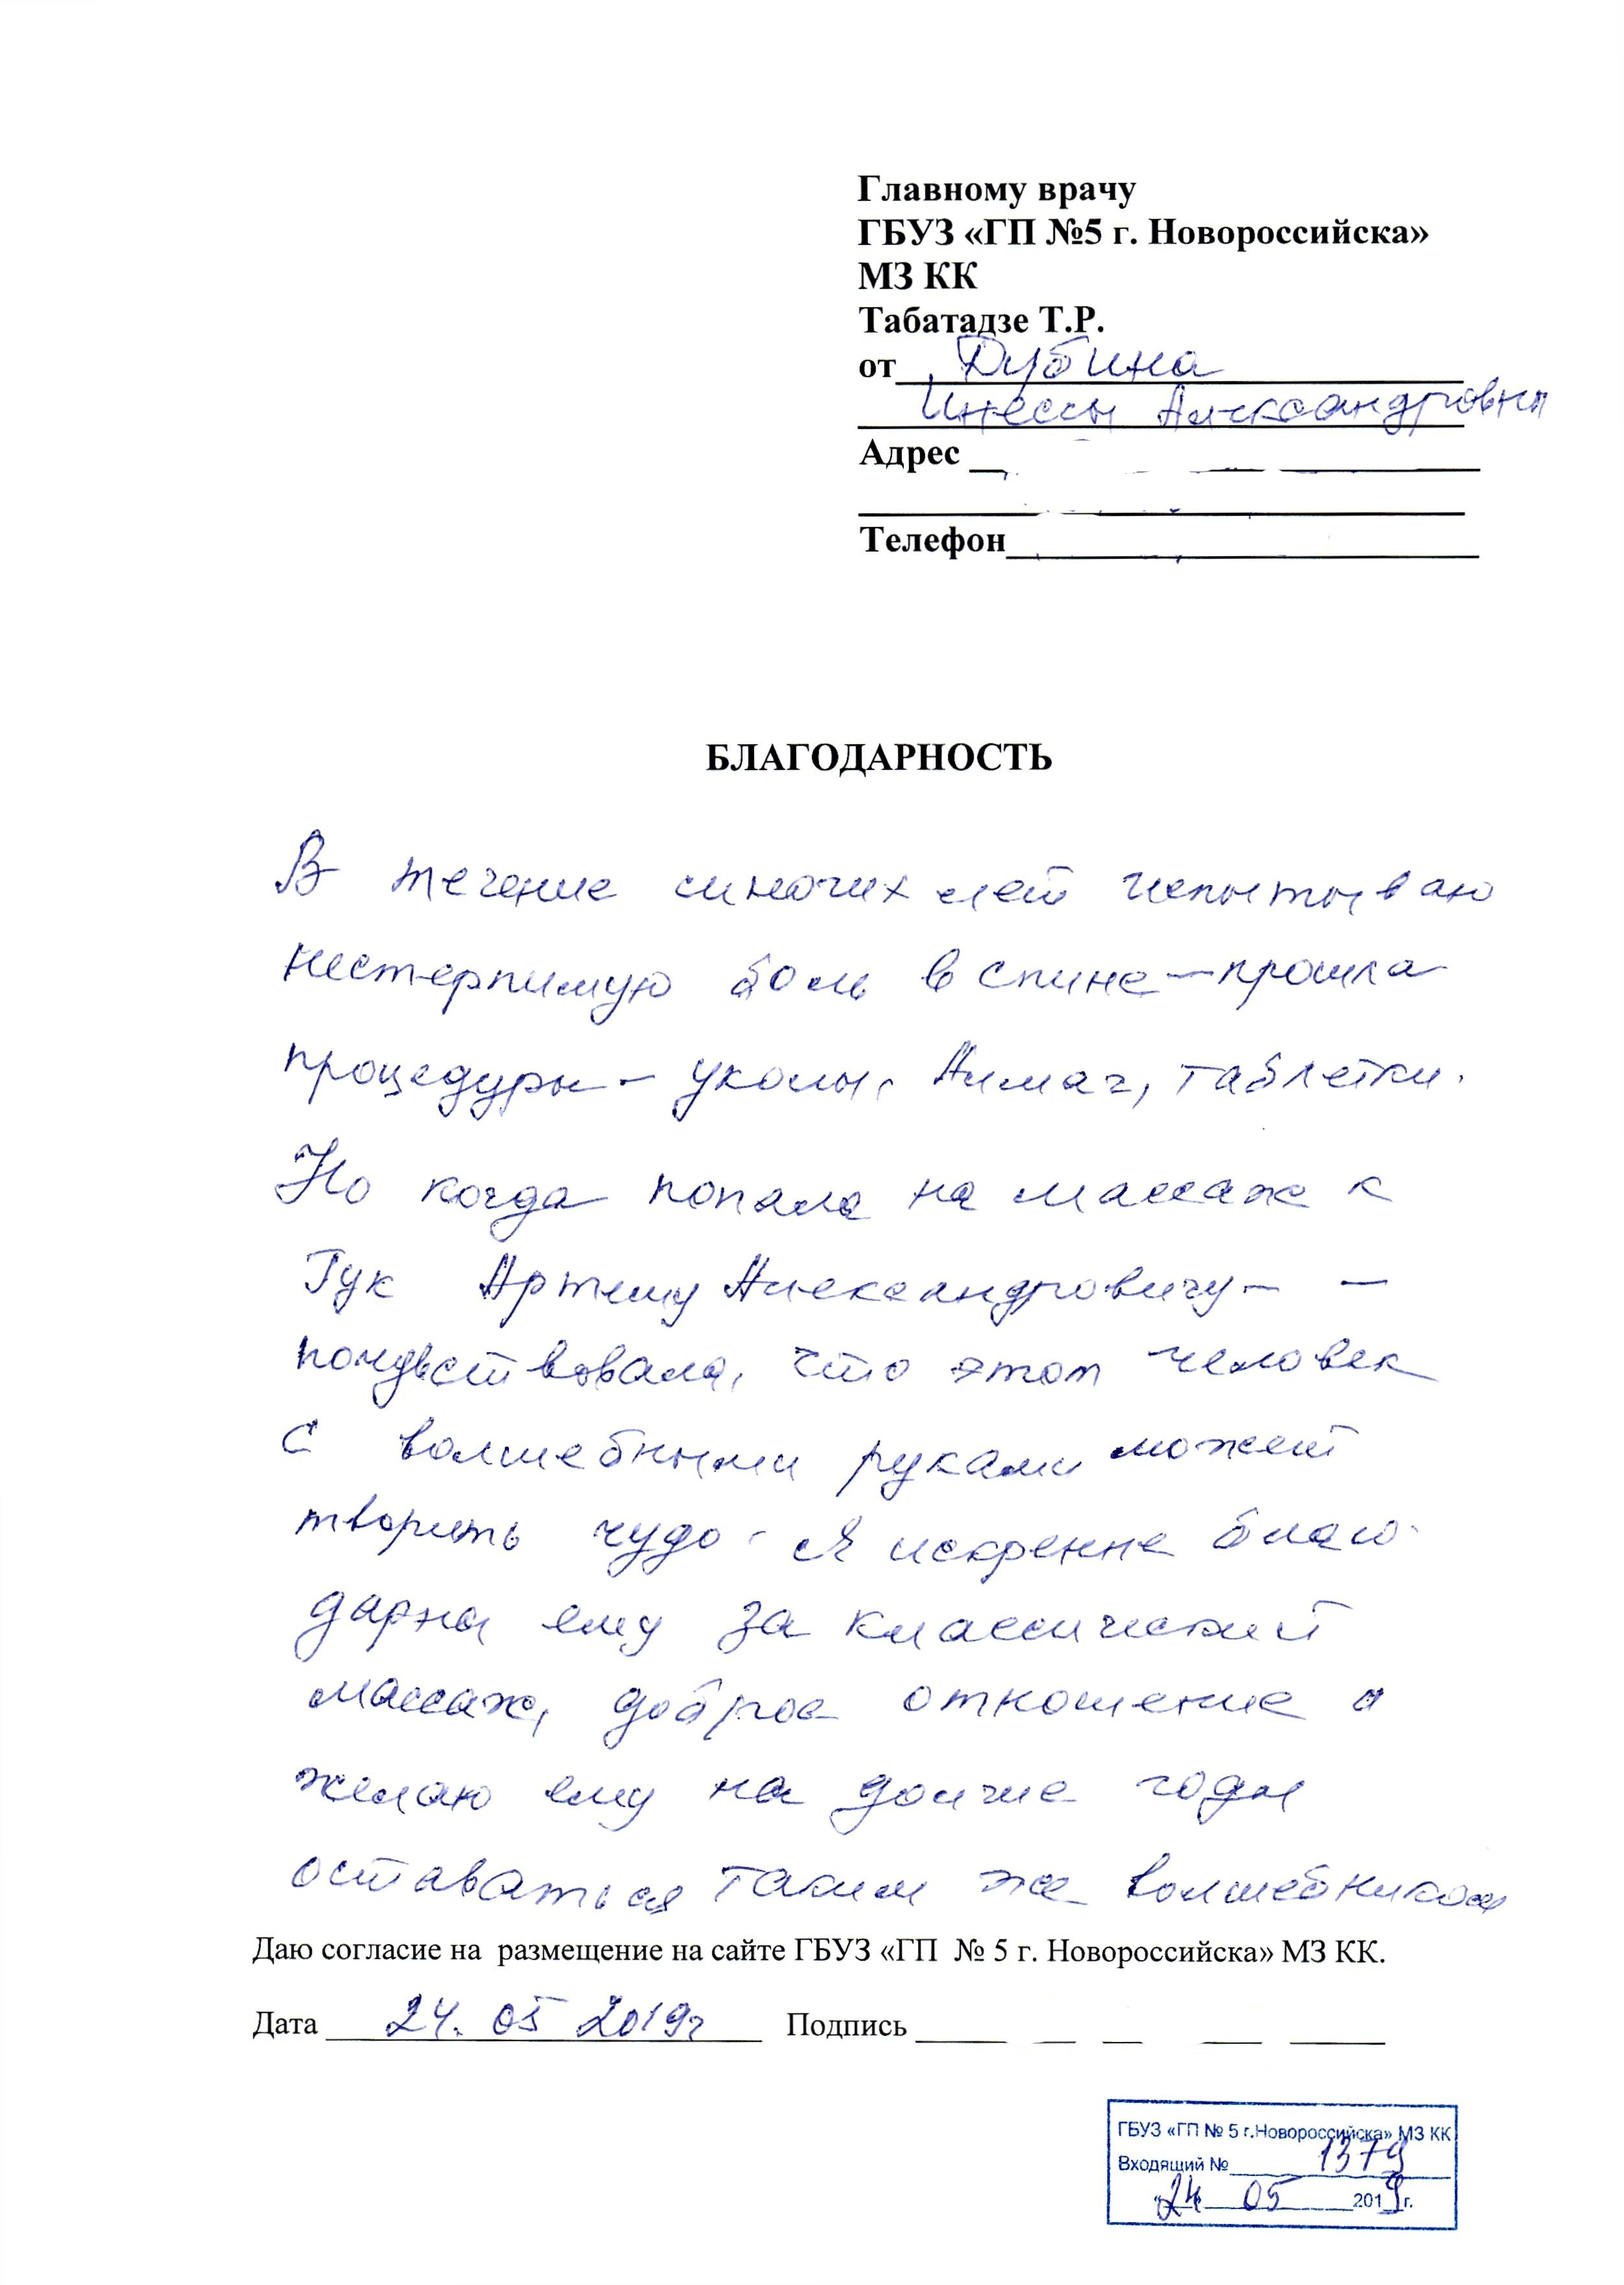 Главному врачу
ГБУЗ «ГП №5 г. Новороссийска»
МЗ КК
Табатадзе Т.Р.
от Дубина
Инессы Александровны
Адрес
Телефон
БЛАГОДАРНОСТЬ
В течение многих лет испытываю
нестерпимую боль в спине – прошла
процедуры – уколы, Алмаг, таблетки.
Но когда попала на массаж к
Гук Артему Александровичу – –
почувствовала, что этот человек
с волшебными руками может
творить чудо. Я искренне благо-
дарна ему за классический
массаж, доброе отношение и
желаю ему на долгие годы
оставаться таким же волшебником
Даю согласие на размещение на сайте ГБУЗ «ГП № 5 г. Новороссийска» МЗ КК.
Дата 24. 05 2019г Подпись
ГБУЗ «ГП № 5 г.Новороссийска» МЗ КК
Входящий № 1379
"24 05 2019 г.